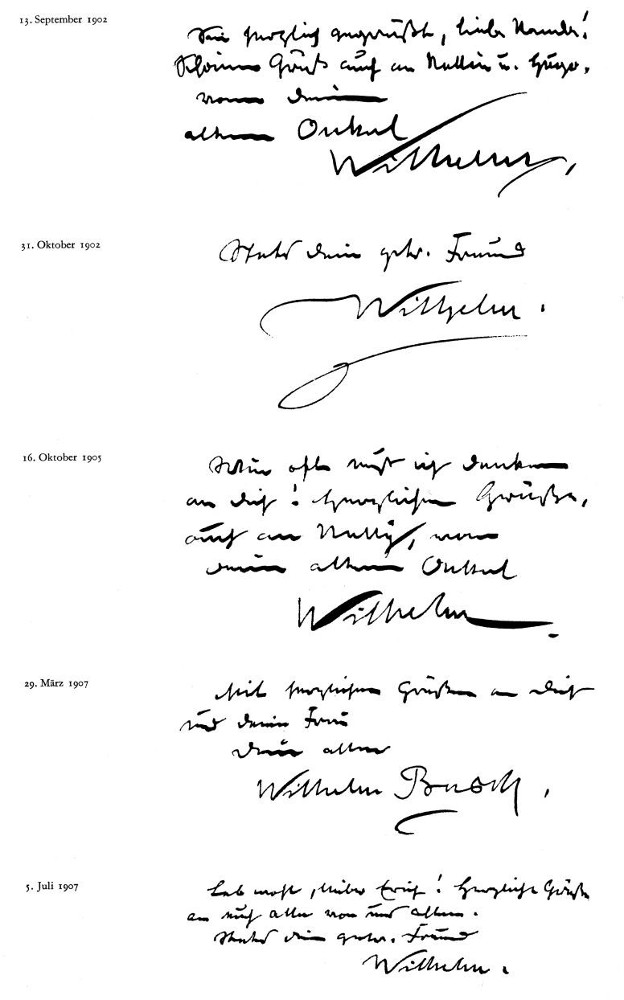 13. September 1902
Sei herzlich gegrüßt, liebe Nanda!
Schönen Gruß auch an Nellie u. Hugo,
von deinem
alten Onkel
Wilhelm,
31. Oktober 1902
Stets dein getr. Freund
Wilhelm.
16. Oktober 1905
Wie oft muß ich denken
an dich! Herzlichen Grüße,
auch an Nelly, von
deinem alten Onkel
Wilhelm.
29. März 1907
Mit herzlichen Grüßen an dich
und deine Frau
Dein alter
Wilhelm Busch,
5. Juli 1907
Leb wohl, lieber Erich! Herzliche Grüße
an euch alle von uns allen.
Stets dein getr. Freund
Wilhelm.